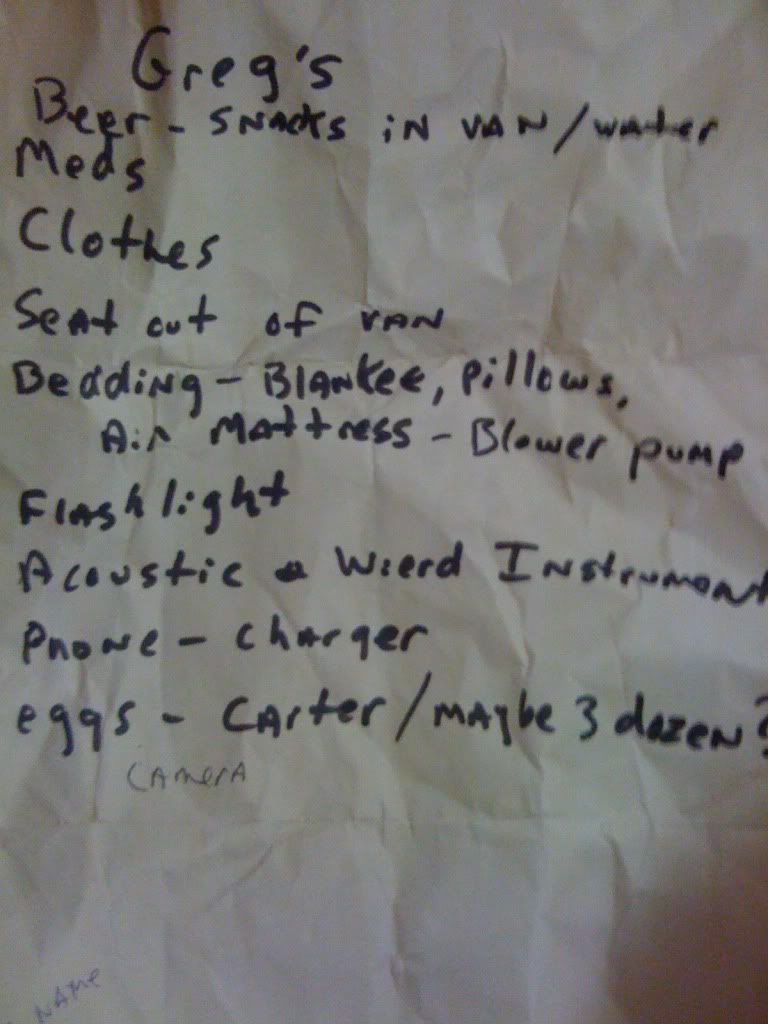 Greg's
Beer - SNACKS iN VAN/water
Meds
Clothes
Seat out of VAN
Bedding - Blankee, Pillows,
Air Mattress - Blower pump
Flashlight
Acoustic & Wierd Instrument
Phone - Charger
eggs - Carter/maybe 3 dozen?
CAMERA
NAME